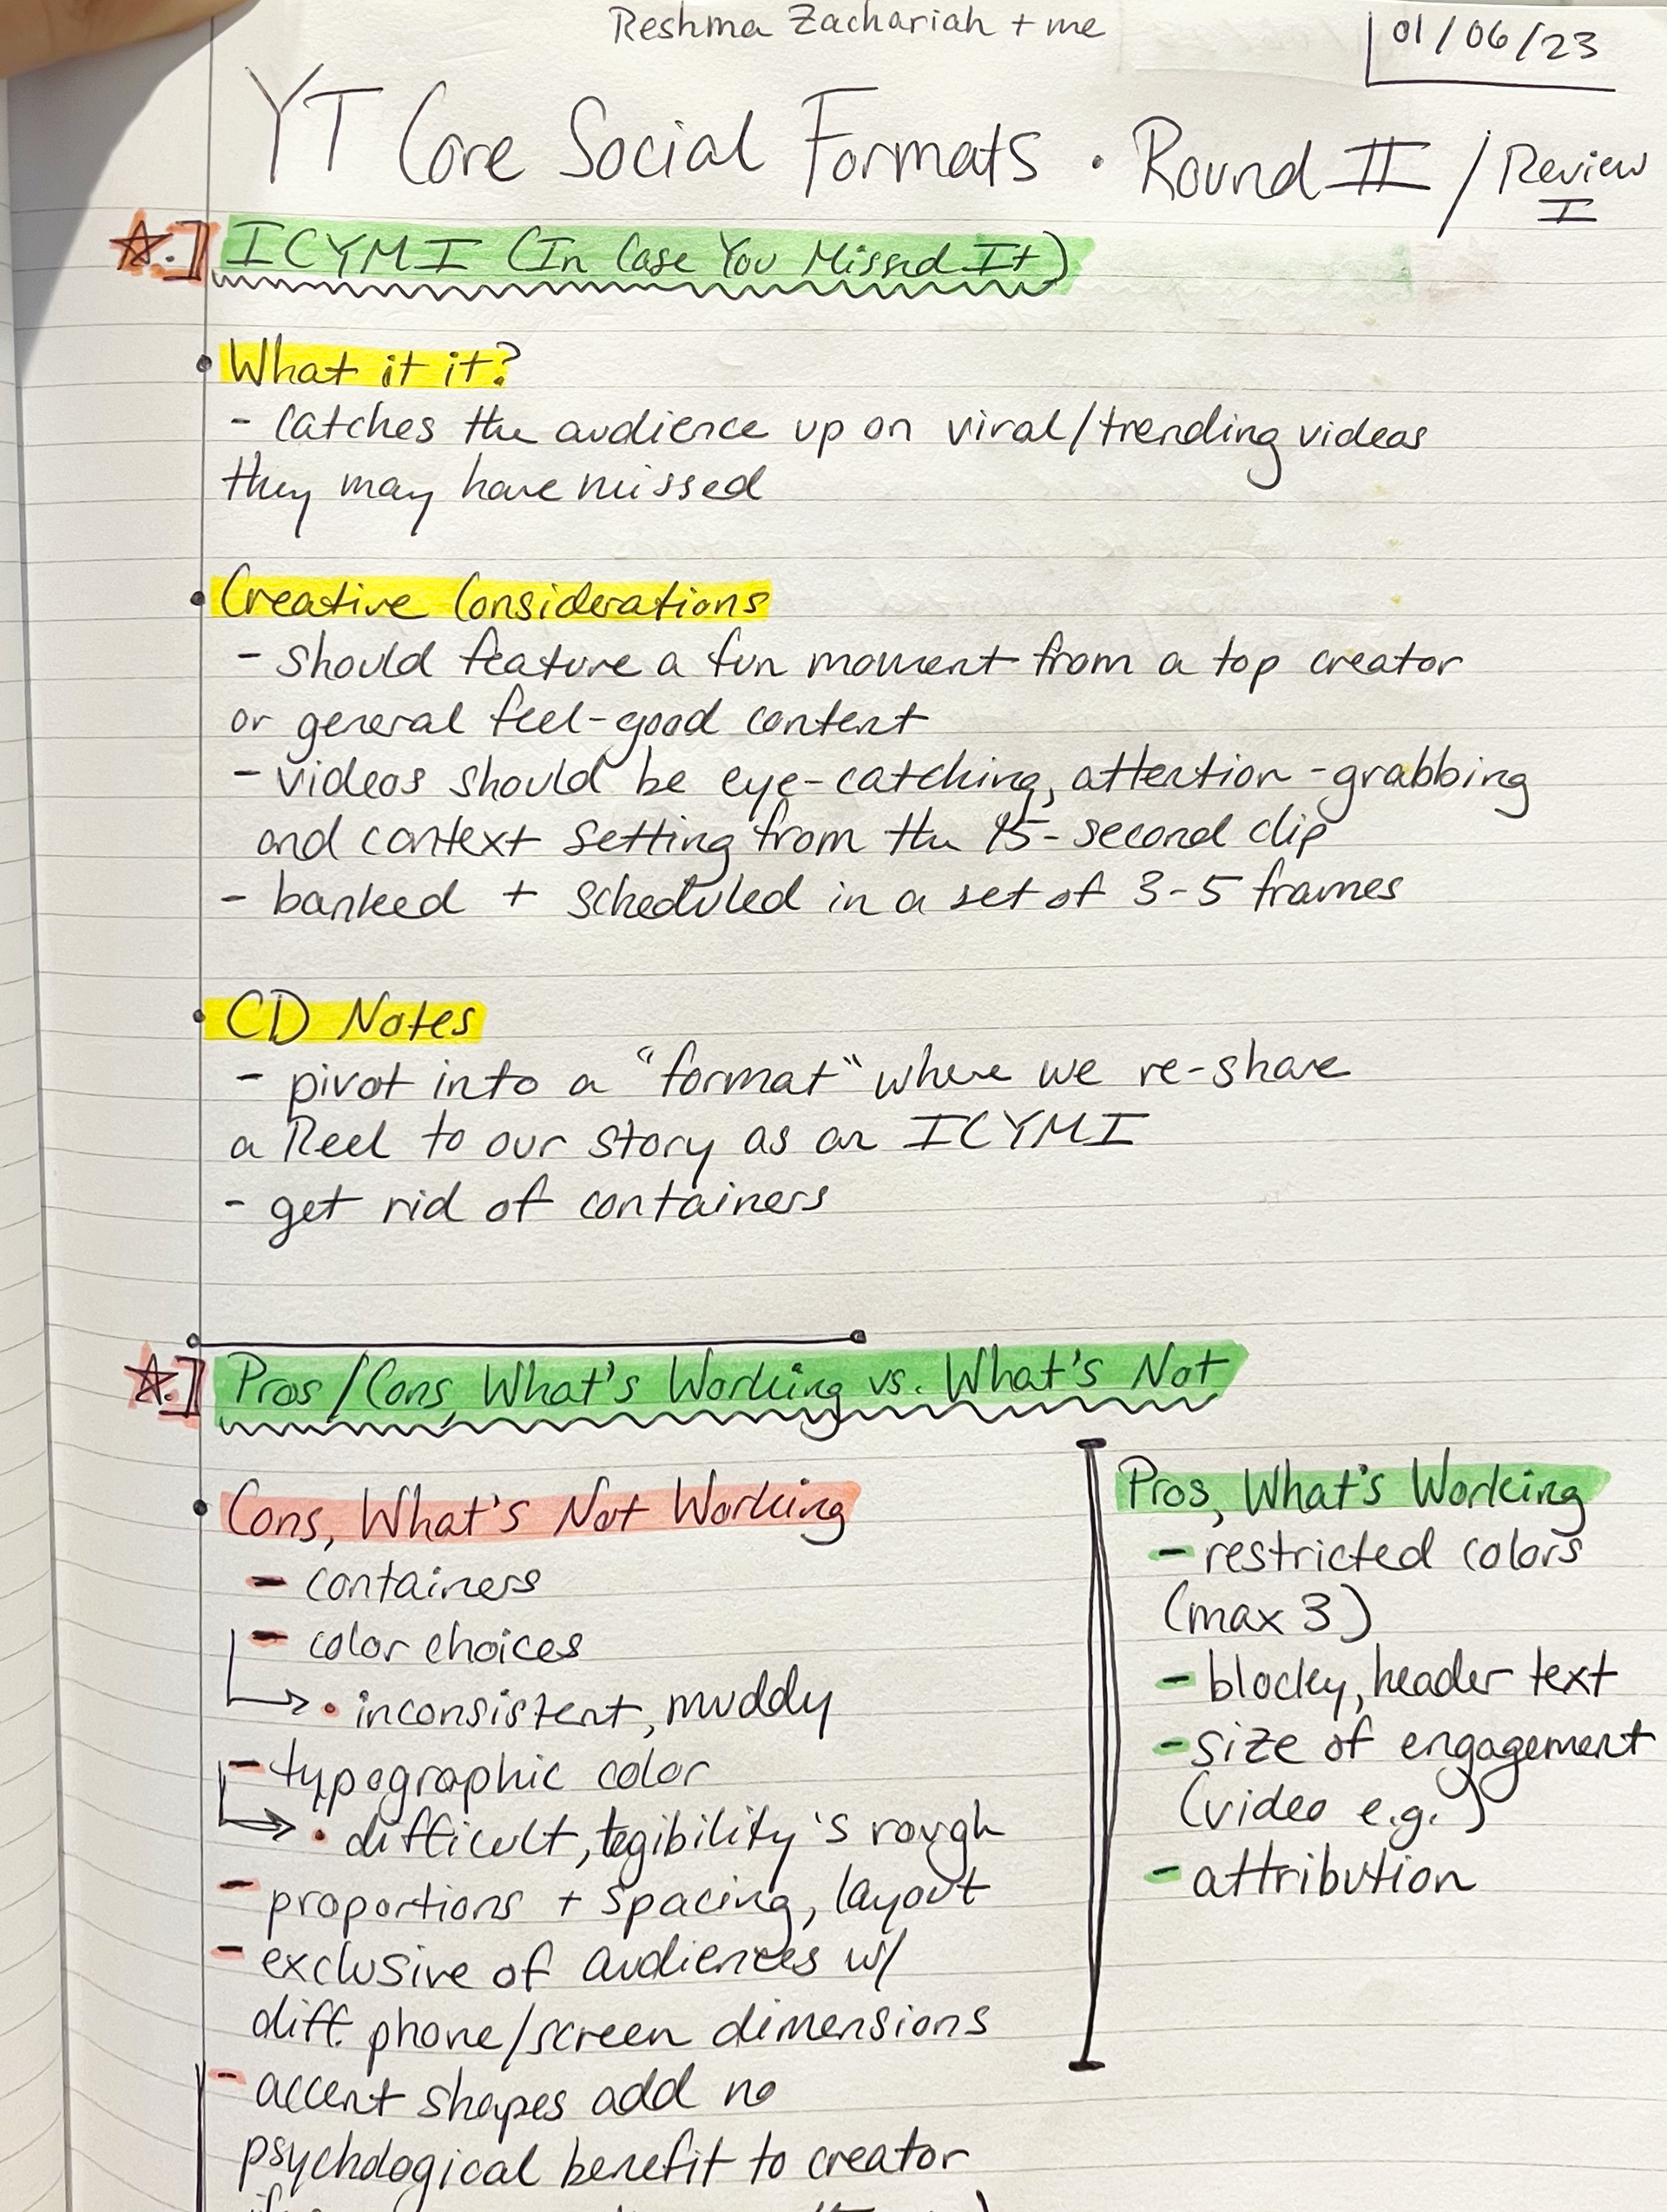 Reshma Zachariah + me
01/06/23
YT Core Social Formats · Round II / Review I
☆.] ICYMI (In Case You Missed It)
• What it it?
- catches the audience up on viral/trending videos
they may have missed
• Creative Considerations
- should feature a fun moment from a top creator
or general feel-good content
- videos should be eye-catching, attention-grabbing
and context setting from the 15-second clip
- banked + scheduled in a set of 3-5 frames
• CD Notes
- pivot into a "format" where we re-share
a Reel to our story as an ICYMI
- get rid of containers
☆.] Pros/Cons, What's Working vs. What's Not
• Cons, What's Not Working
- containers
- color choices
→ • inconsistent, muddy
- typographic color
→ • difficult, legibility's rough
- proportions + spacing, layout
- exclusive of audiences w/
diff. phone/screen dimensions
- accent shapes add no
psychological benefit to creator
Pros, What's Working
- restricted colors
(max 3)
- blocky, header text
- size of engagement
(video e.g.)
- attribution